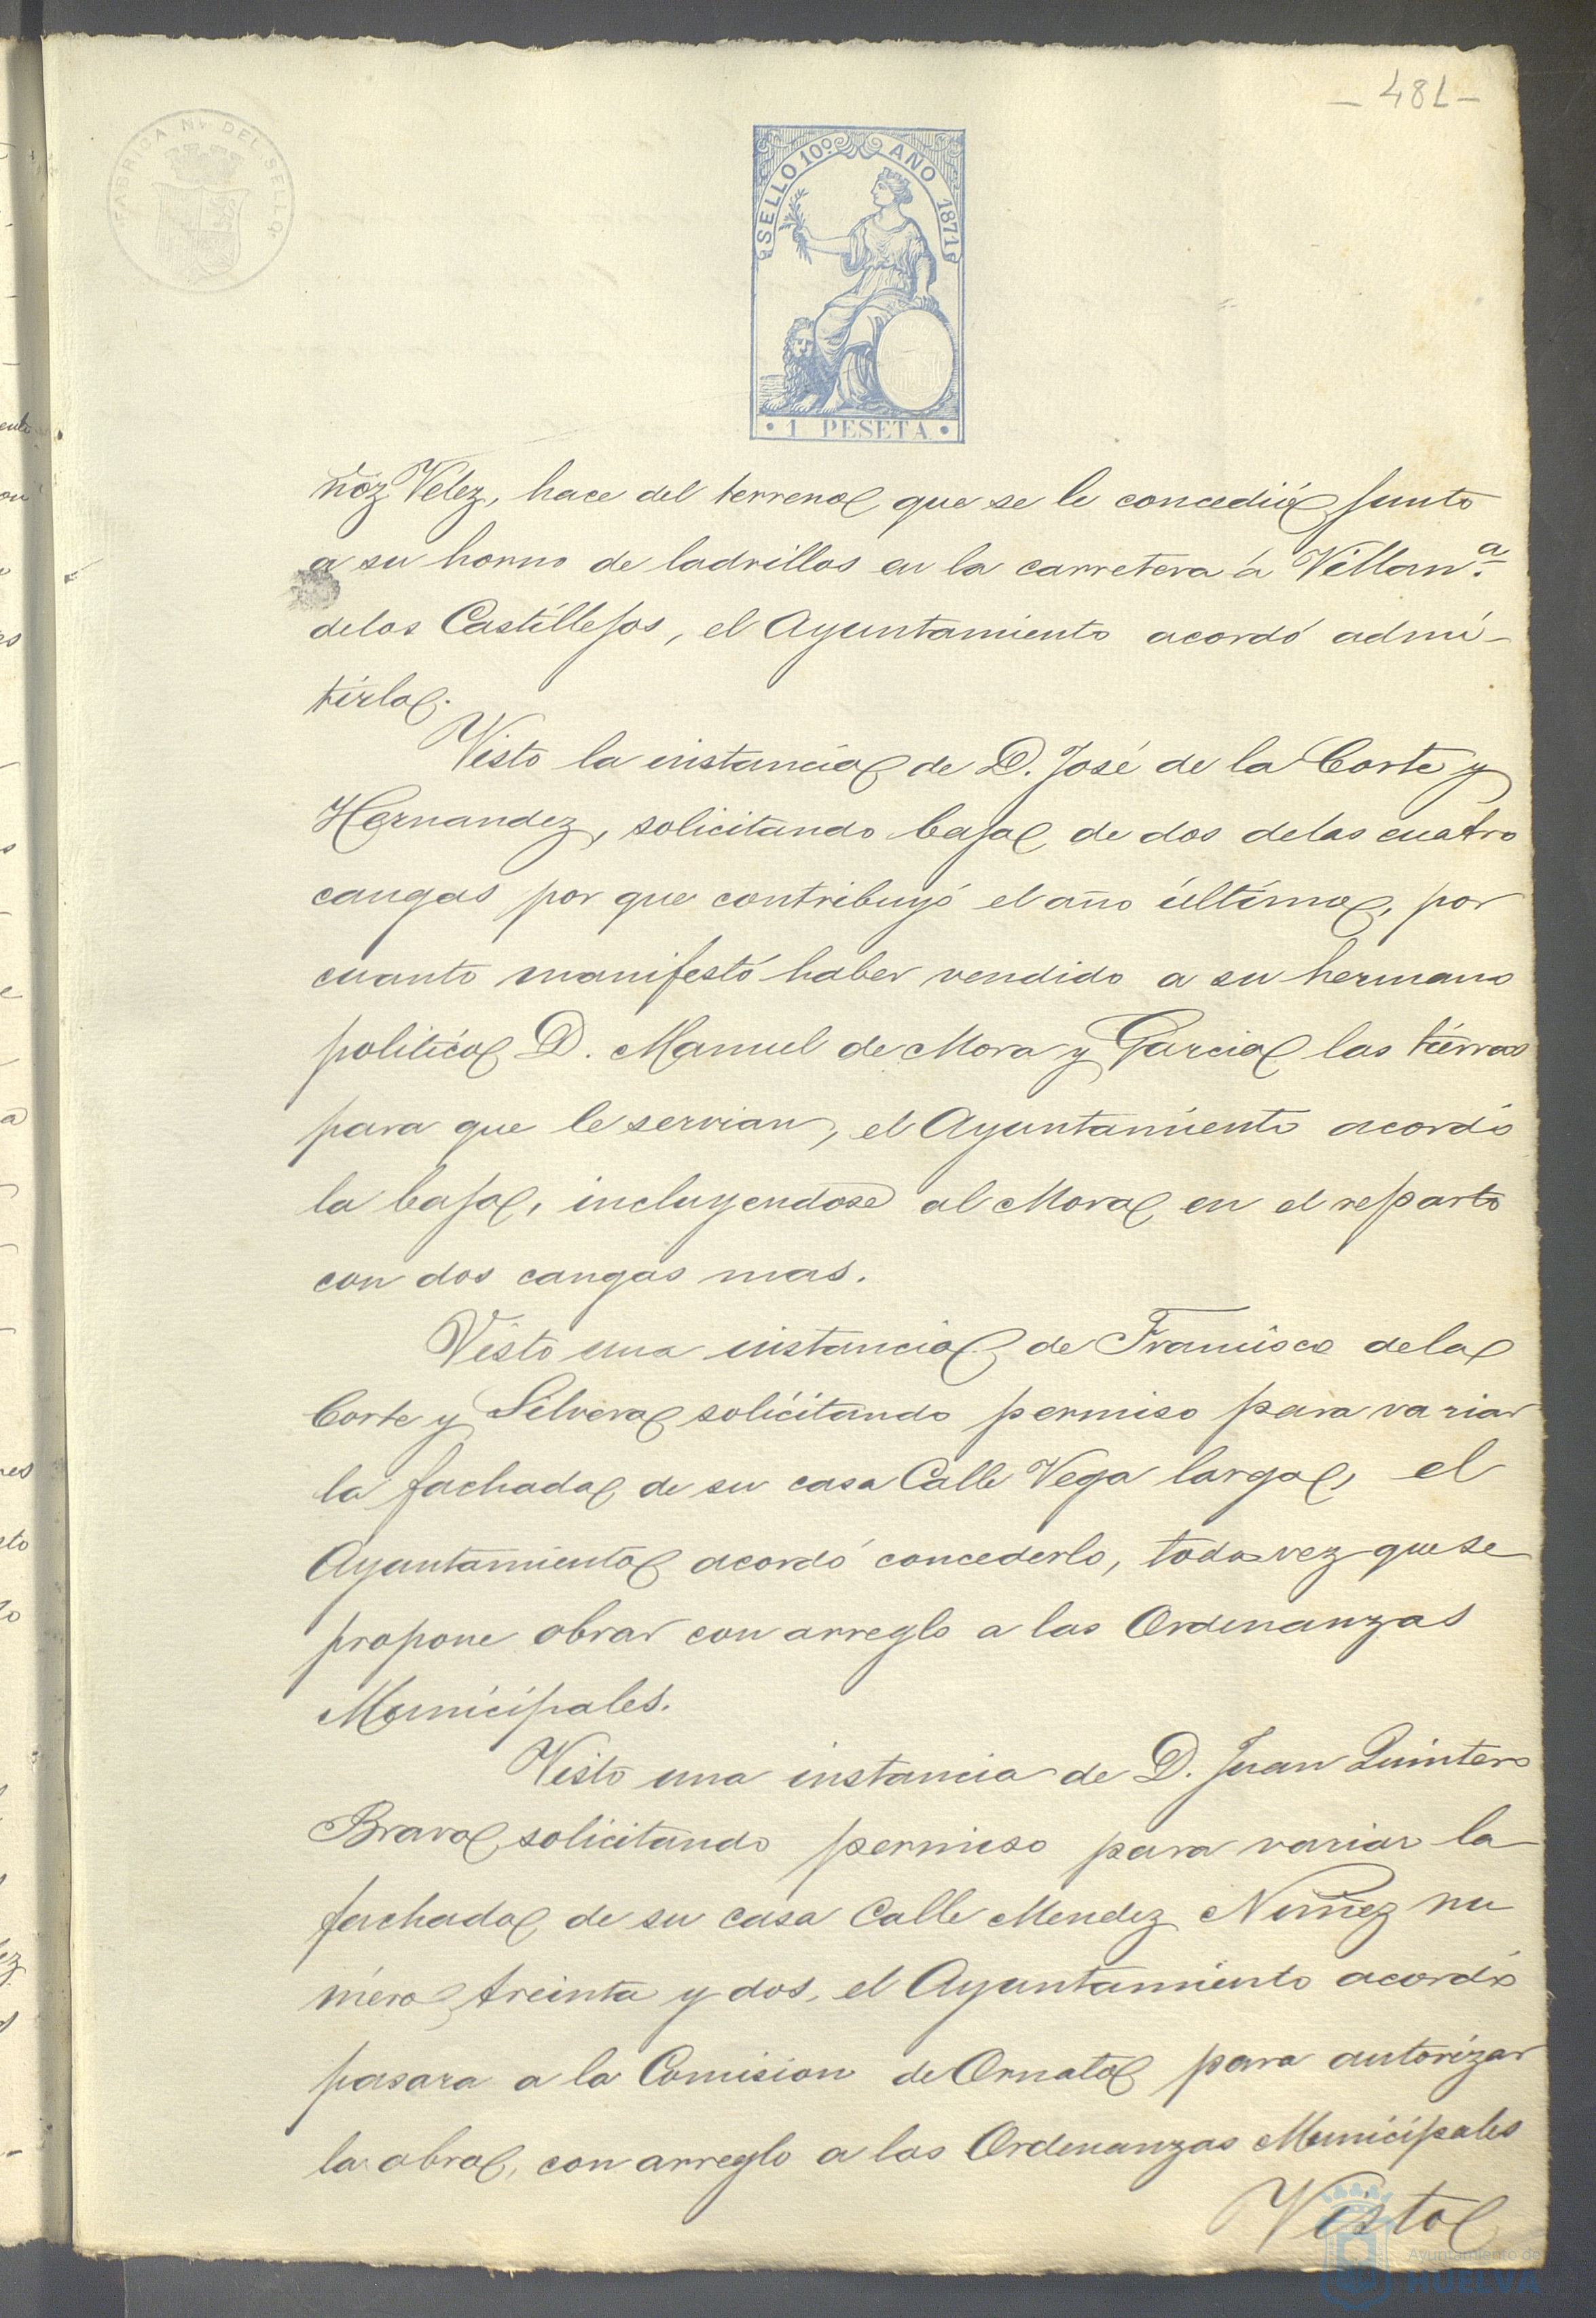 - 481-
FABRICA Nl. DEL SELLO
SELLO 10º AÑO 1871
• 1 PESETA •
ñoz Velez, hace del terreno que se le concedió junto
a su horno de ladrillos en la carretera á Villan.ª
delos Castillejos, el Ayuntamiento acordó admi-
tirla.
Visto la instancia de D. José de la Corte y
Hernandez, solicitando baja de dos delas cuatro
cangas por que contribuyó el año último, por
cuanto manifestó haber vendido a su hermano
politico D. Manuel de Mora y Garcia las tierras
para que le servian, el Ayuntamiento acordó
la baja, incluyendose al Mora en el reparto
con dos cangas mas.
Visto una instancia de Francisco dela
Corte y Silvera solicitando permiso para variar
la fachada de su casa Calle Vega larga, el
Ayuntamiento acordó concederlo, toda vez que se
propone obrar con arreglo a las Ordenanzas
Municipales.
Visto una instancia de D. Juan Quintero
Bravo solicitando permiso para variar la
fachada de su casa Calle Mendez Nuñez nu
mero treinta y dos, el Ayuntamiento acordó
pasara a la Comision de Ornato para autorizar
la obra, con arreglo a las Ordenanzas Municipales
Visto
Ayuntamiento de
HUELVA